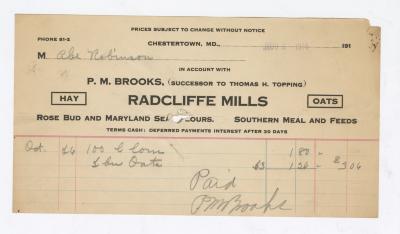 PRICES SUBJECT TO CHANGE WITHOUT NOTICE
PHONE 81-2
CHESTERTOWN, MD., 191
M Abe Robinson
IN ACCOUNT WITH
P. M. BROOKS, (SUCCESSOR TO THOMAS H. TOPPING)
HAY RADCLIFFE MILLS OATS
ROSE BUD AND MARYLAND FLOURS. SOUTHERN MEAL AND FEEDS
TERMS CASH: DEFERRED PAYMENTS INTEREST AFTER 30 DAYS
Oct. 100 Corn 1 80
Oats
Paid
P M Brooks